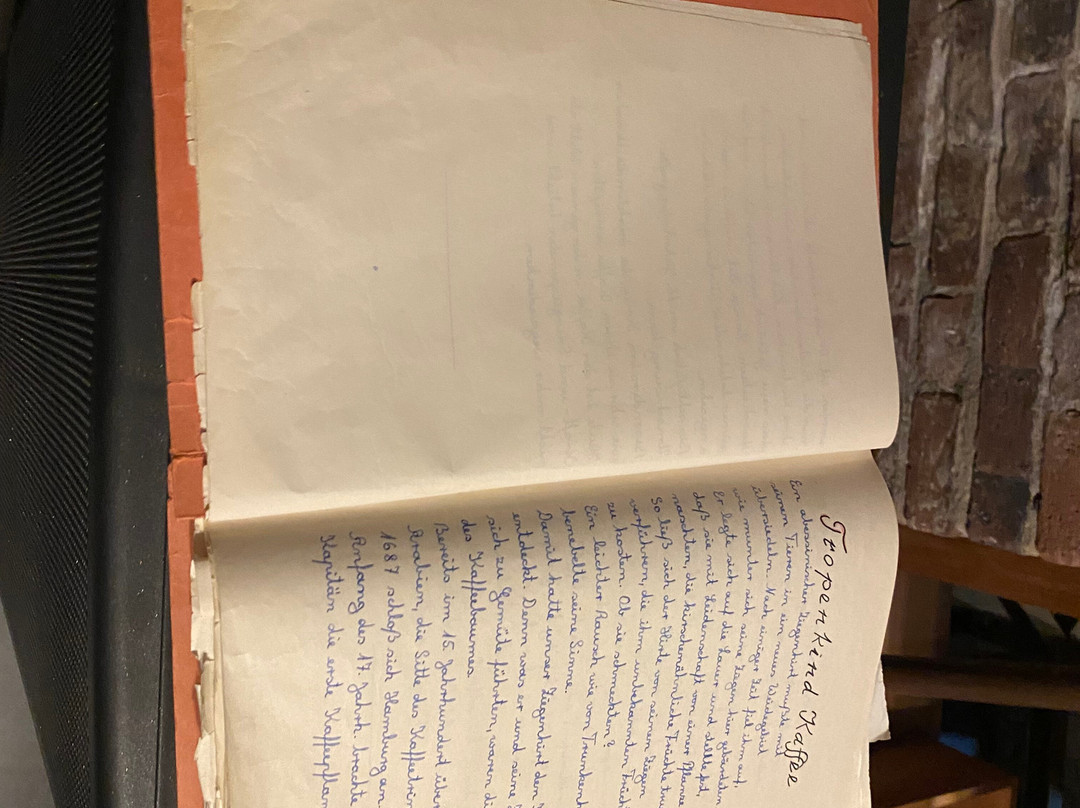 Tropenkind Kaffee
Ein abessinischer Ziegenhirt mußte mit
seinen Tieren in ein neues Weidegebiet
übersiedeln. Nach einiger Zeit fiel ihm auf,
wie munter sich seine Ziegen hier gebärdeten.
Er legte sich auf die Lauer und stellte fest,
daß sie mit Leidenschaft von einer Pflanze
naschten, die kirschenähnliche Früchte tru
So ließ sich der Hirte von seinen Ziegen
verführen, die ihm unbekannten Früch
zu kosten. Ob sie schmeckten?
Ein leichter Rausch wie von Trunkenh
benebelte seine Sinne.
Damit hatte unser Ziegenhirt den
entdeckt. Denn was er und seine
sich zu Gemüte führten, waren di
des Kaffeebaumes.
Bereits im 15. Jahrhundert über
Arabien, die Sitte des Kaffeetrin
1687 schloß sich Hamburg an.
Anfang des 17. Jahrh. brachte
Kapitän die erste Kaffeepflan